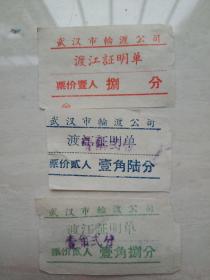 武汉市輪渡公司
渡江証明单
票价壹人 捌 分
武汉市輪渡公司
渡江証明单
票价貳人 壹角陆分
武汉市輪渡公司
渡江証明单
壹角弍分
票价貳人 壹角捌分